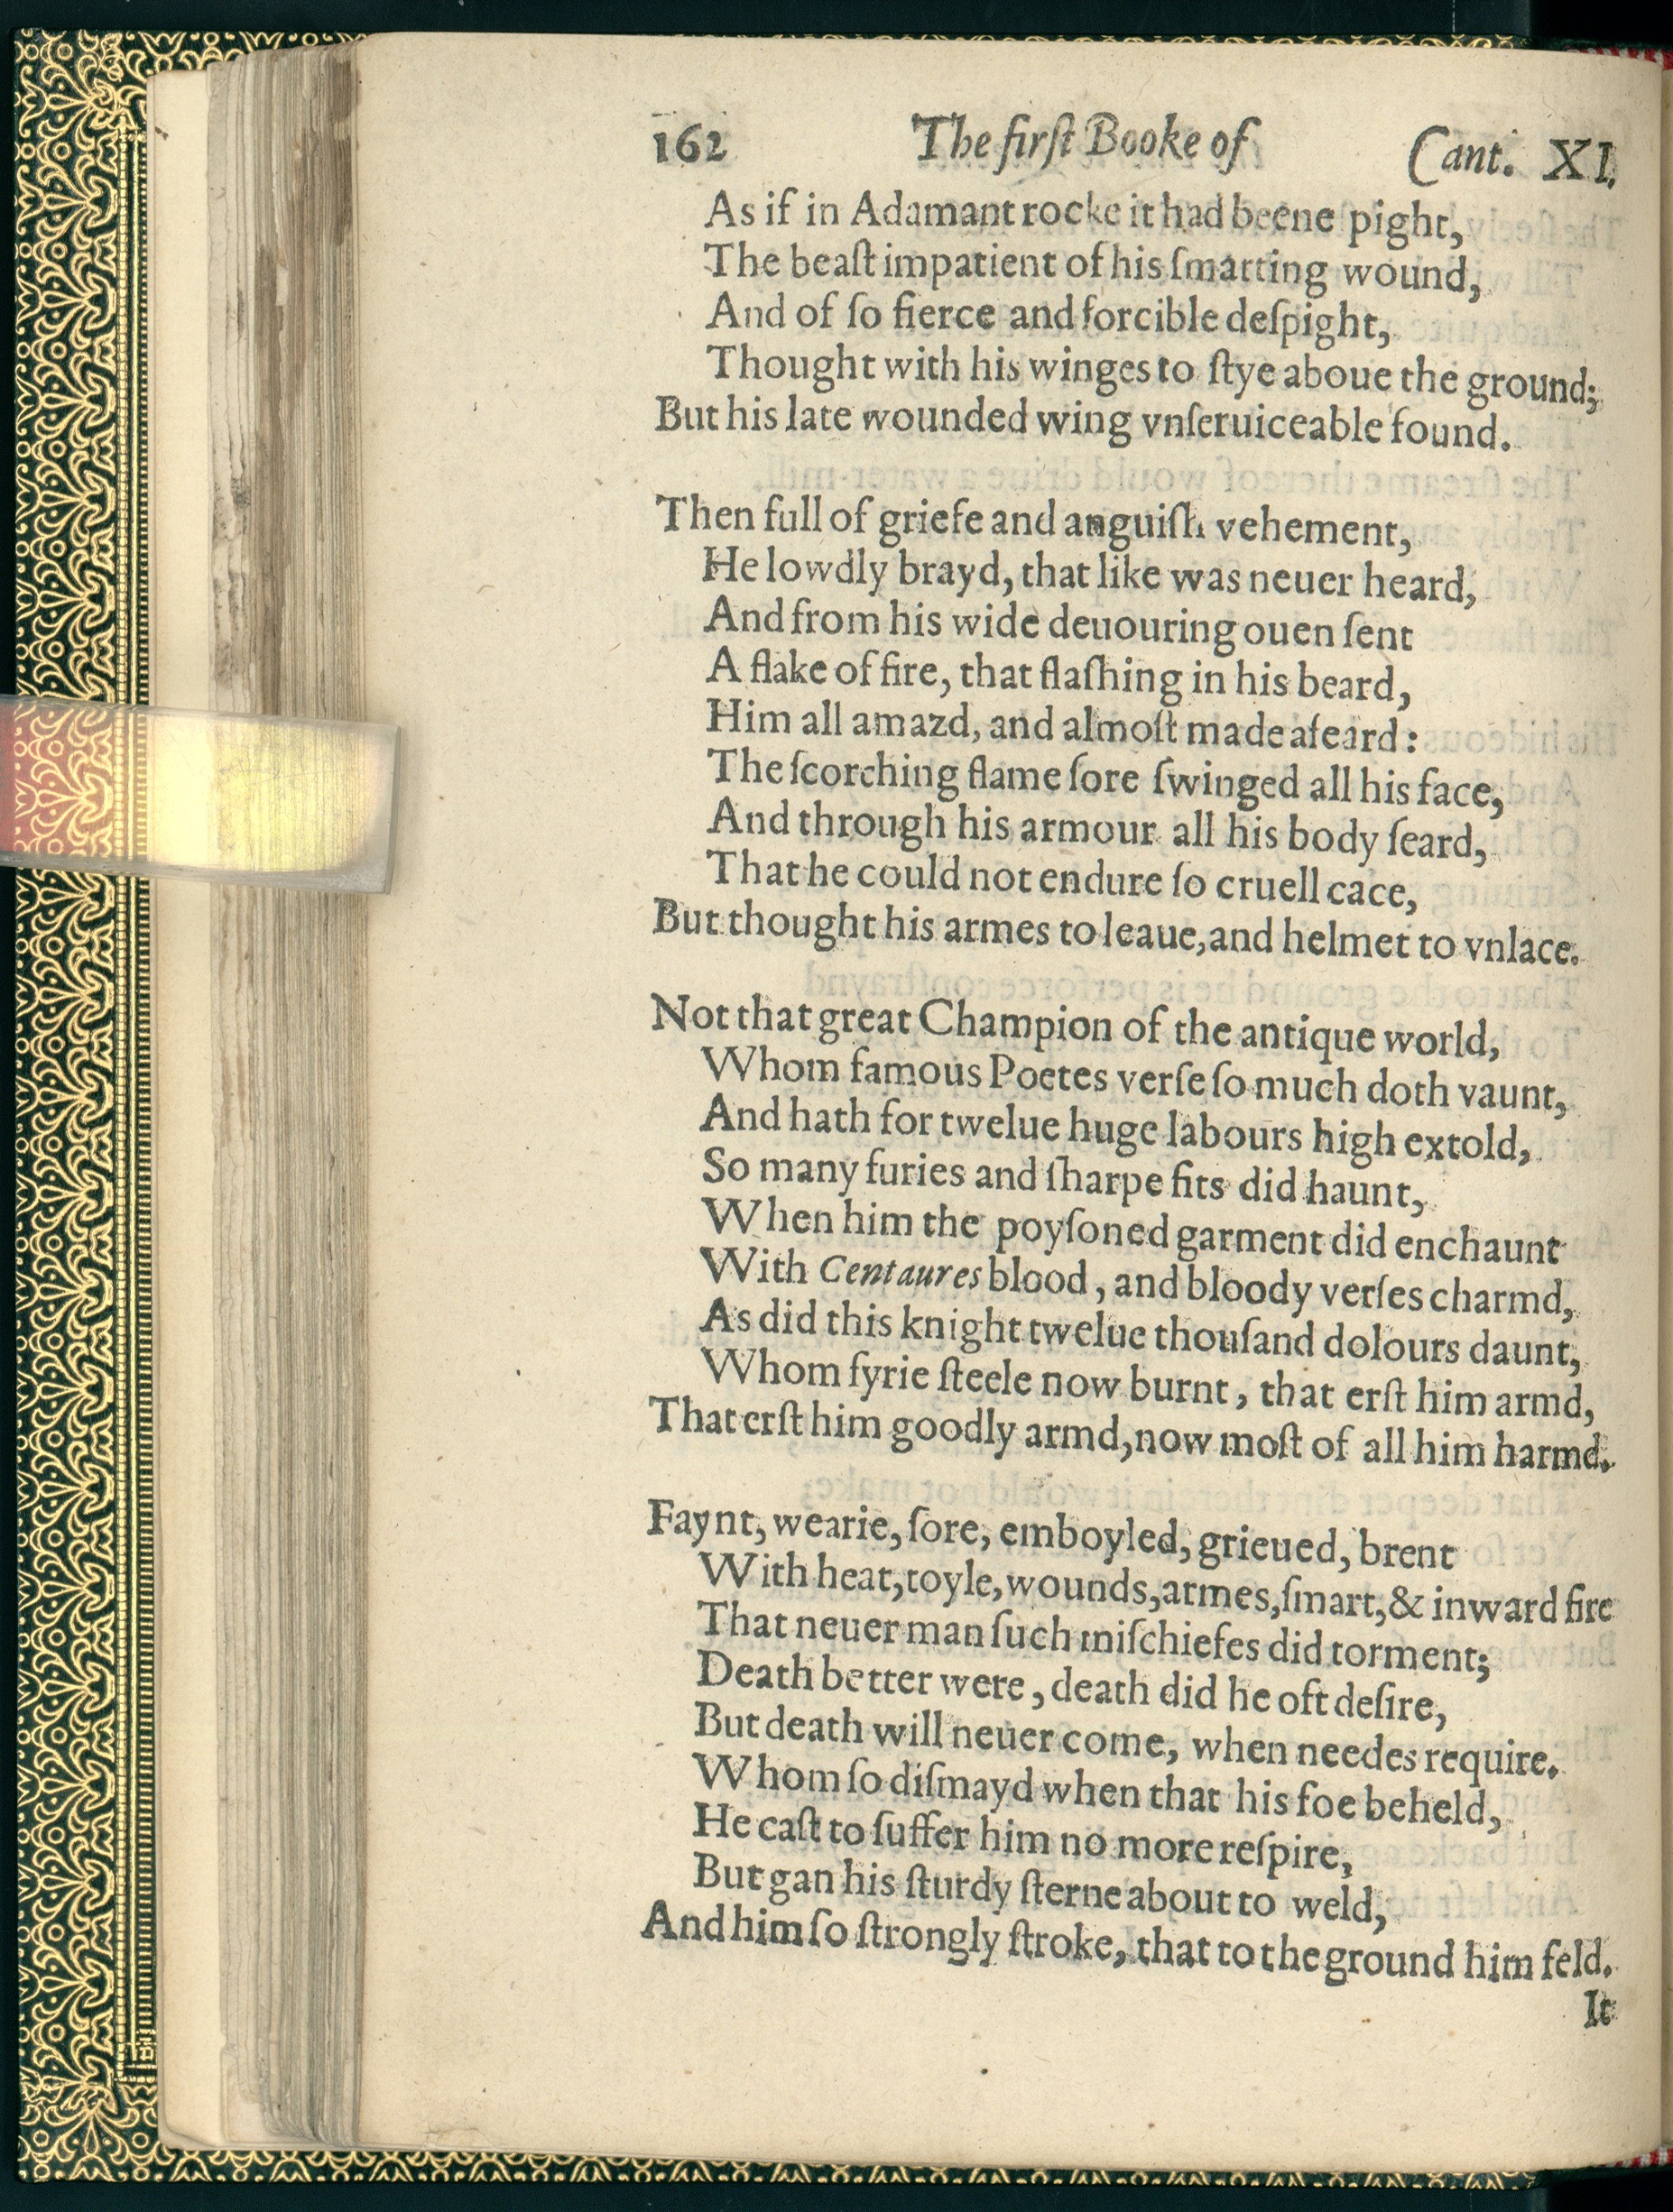 162 The firſt Booke of Cant. XI.
As if in Adamant rocke it had beene pight,
The beaſt impatient of his ſmarting wound,
And of ſo fierce and forcible deſpight,
Thought with his winges to ſtye aboue the ground;
But his late wounded wing vnſeruiceable found.
Then full of griefe and anguiſh vehement,
He lowdly brayd, that like was neuer heard,
And from his wide deuouring ouen ſent
A flake of fire, that flaſhing in his beard,
Him all amazd, and almoſt made afeard:
The ſcorching flame ſore ſwinged all his face,
And through his armour all his body ſeard,
That he could not endure ſo cruell cace,
But thought his armes to leaue, and helmet to vnlace.
Not that great Champion of the antique world,
Whom famous Poetes verſe ſo much doth vaunt,
And hath for twelue huge labours high extold,
So many furies and ſharpe fits did haunt,
When him the poyſoned garment did enchaunt
With Centaures blood, and bloody verſes charmd,
As did this knight twelue thouſand dolours daunt,
Whom fyrie ſteele now burnt, that erſt him armd,
That erſt him goodly armd, now moſt of all him harmd.
Faynt, wearie, ſore, emboyled, grieued, brent
With heat, toyle, wounds, armes, ſmart, & inward fire
That neuer man ſuch miſchiefes did torment;
Death better were, death did he oft deſire,
But death will neuer come, when needes require.
Whom ſo diſmayd when that his foe beheld,
He caſt to ſuffer him no more reſpire,
But gan his ſturdy ſterne about to weld,
And him ſo ſtrongly ſtroke, that to the ground him feld.
It